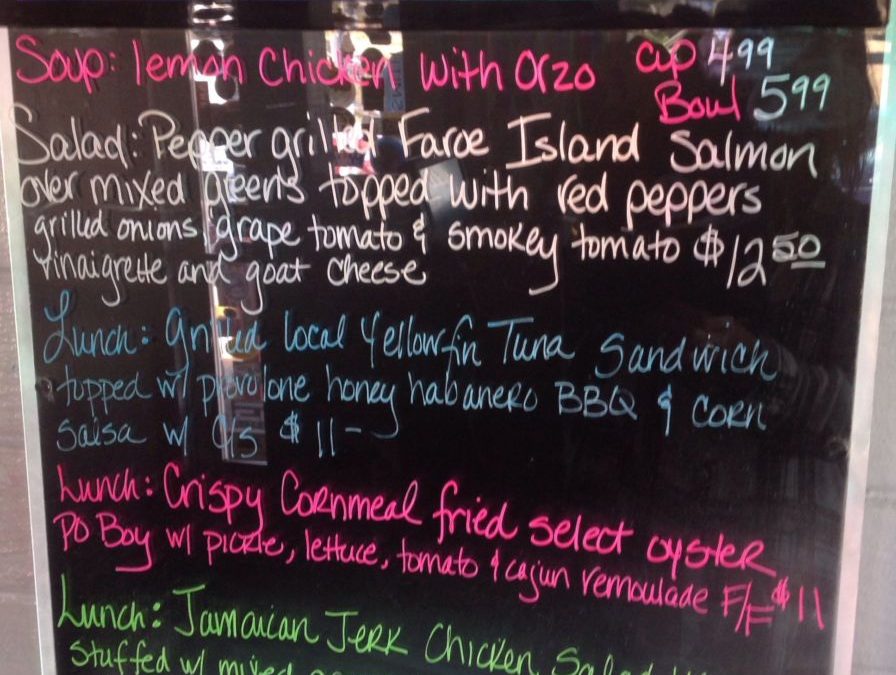 Soup: lemon Chicken with Orzo cup 4.99
Bowl 5.99
Salad: Pepper grilled Faroe Island Salmon
over mixed greens topped with red peppers
grilled onions, grape tomato & smokey tomato $12.50
vinaigrette and goat cheese
Lunch: Grilled local Yellowfin Tuna Sandwich
topped w/ provolone honey habanero BBQ & corn
Salsa w/ C/S $11-
Lunch: Crispy Cornmeal fried select oyster
Po Boy w/ pickle, lettuce, tomato & cajun remoulade F/F $11
Lunch: Jamaican Jerk Chicken Salad
Stuffed w/ mixed